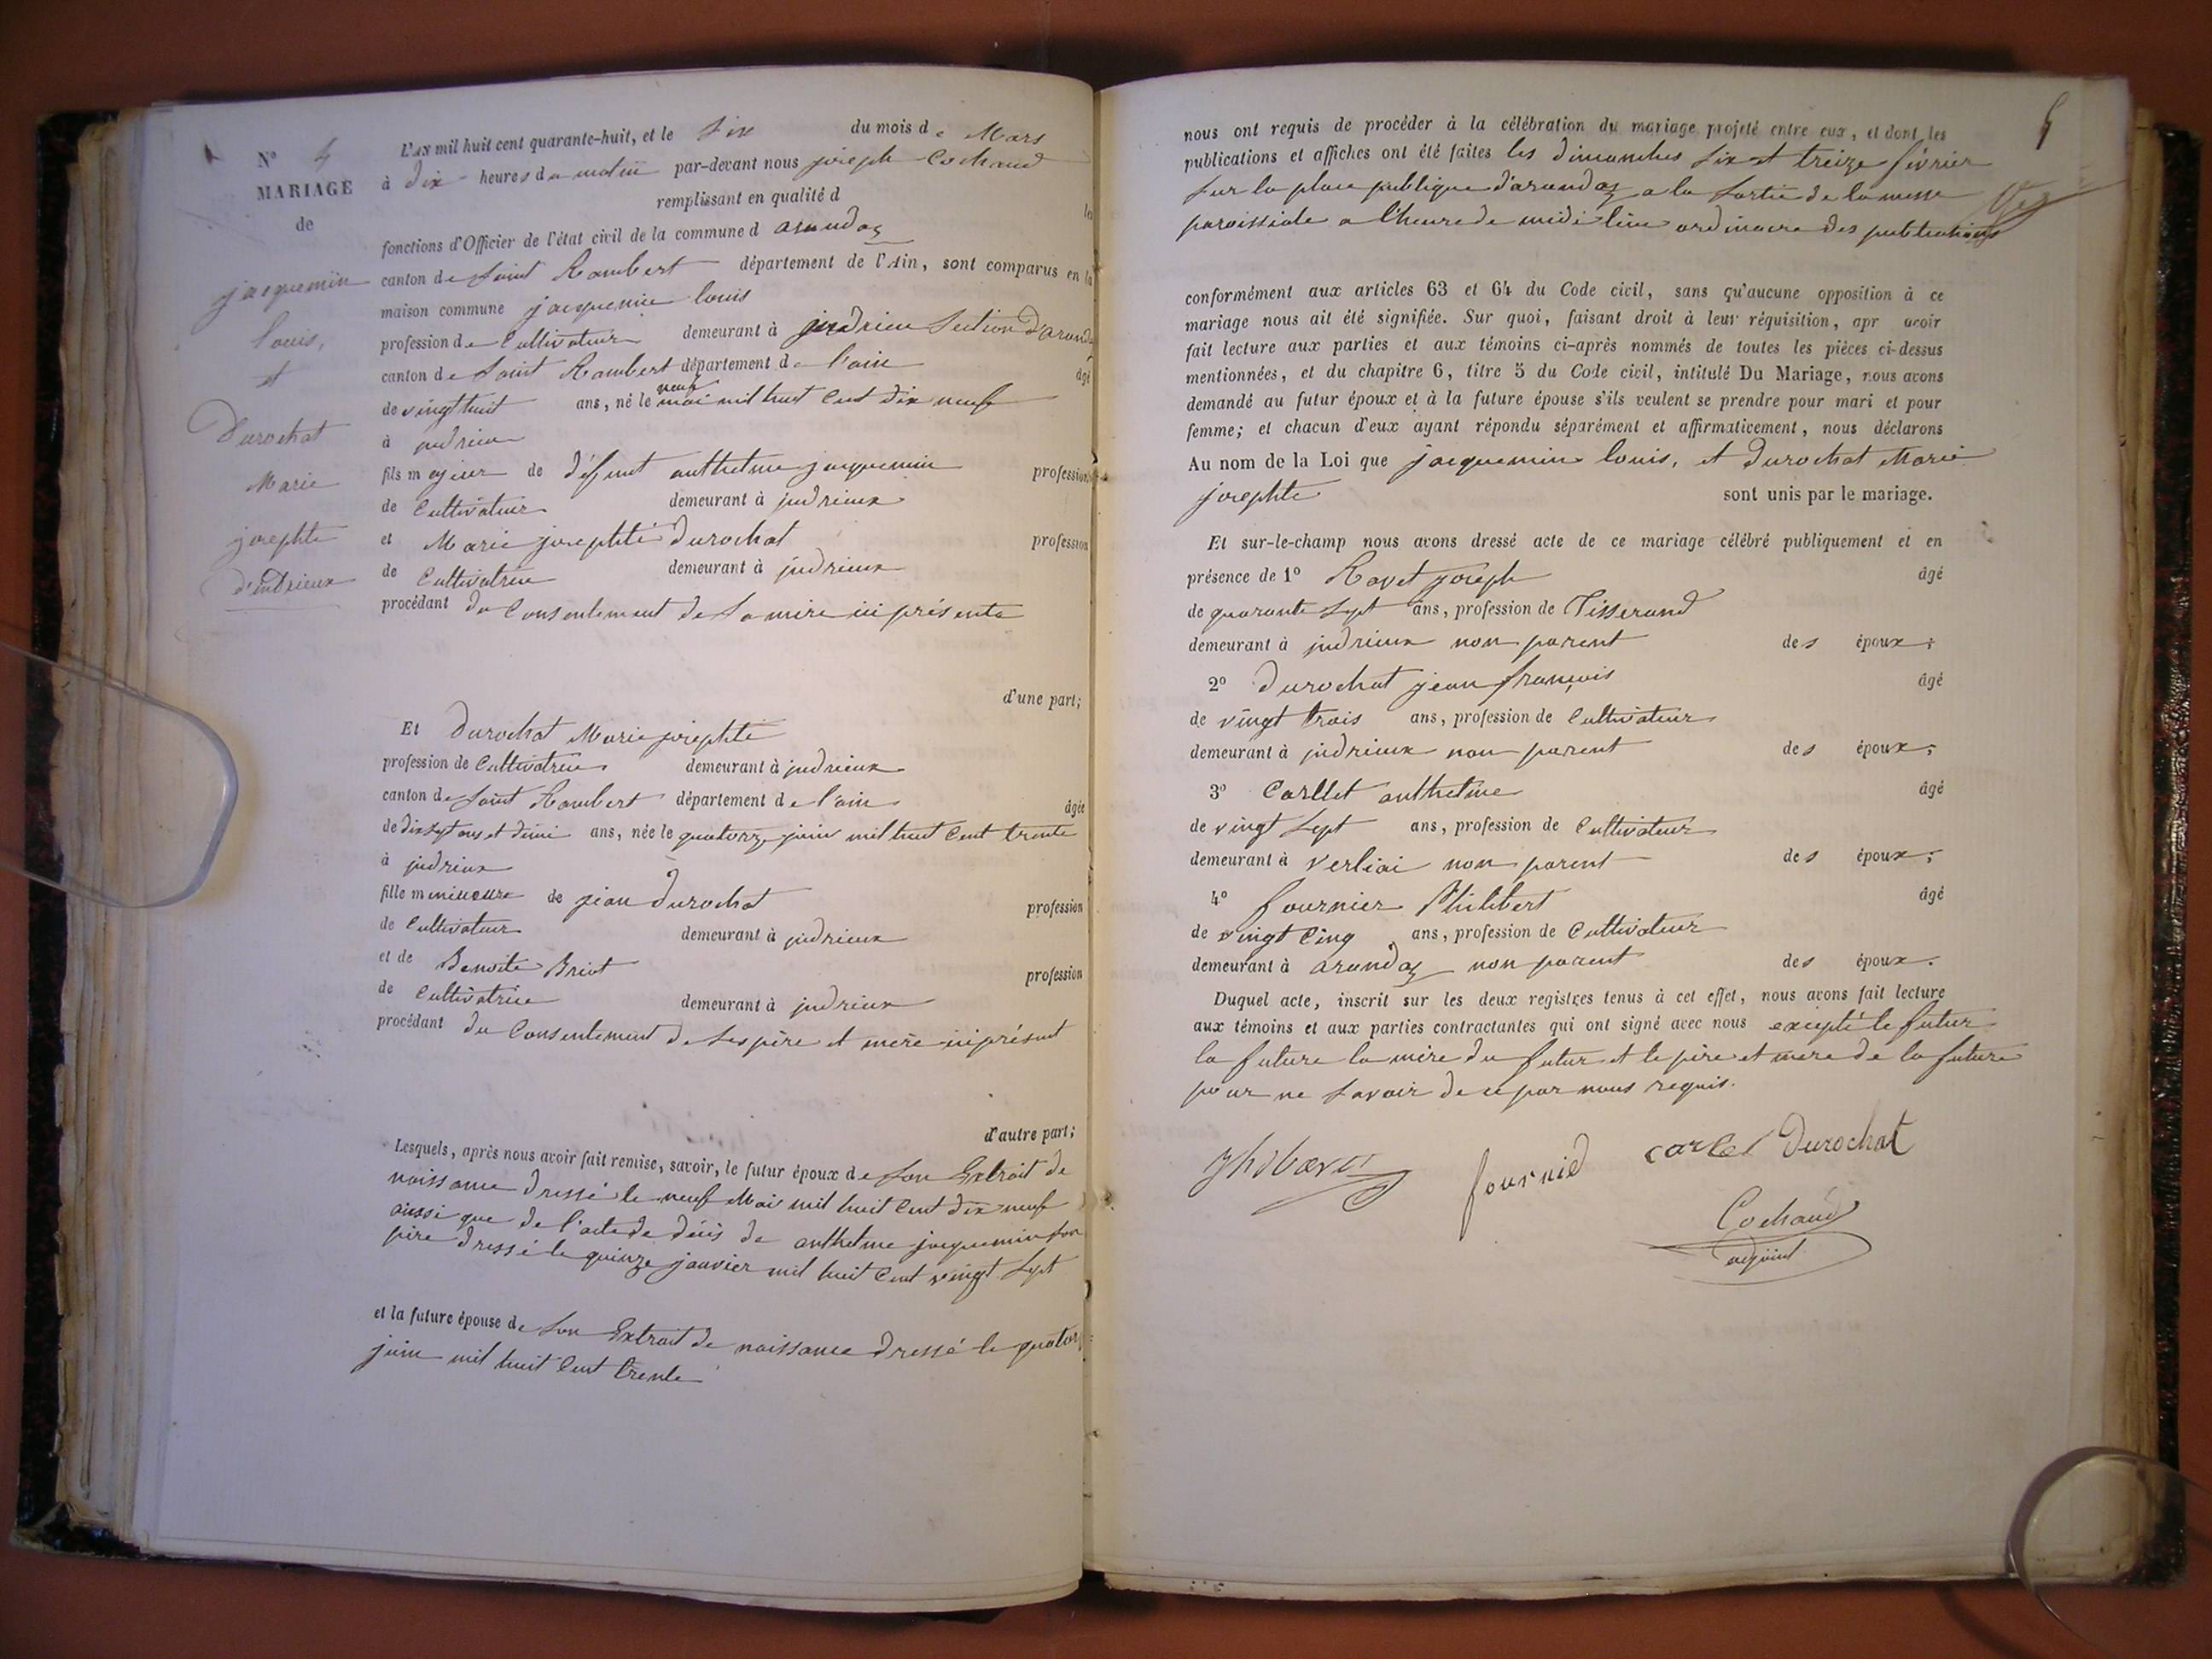 N° 4
MARIAGE
de
jacquemin
louis,
et
Durochat
Marie
josephte
d'indrieux
L'an mil huit cent quarante-huit, et le six du mois de Mars
à dix heures du matin par-devant nous joseph Cochaud
remplissant en qualité d les
fonctions d'Officier de l'état civil de la commune d arandas
canton de Saint Rambert département de l'Ain, sont comparus en la
maison commune jacquemin louis
profession de Cultivateur demeurant à indrieu Section d'arand
canton de Saint Rambert département de l'ain âgé
de vingt huit ans, né le neuf mai mil huit Cent dix neuf
à indrieu
fils majeur de défunt anthelme jacquemin profession
de Cultivateur demeurant à indrieux
et Marie josephte Durochat profession
de Cultivatrice demeurant à indrieux
procédant du Consentement de Sa mère ici présente
d'une part;
Et Durochat Marie josephte
profession de Cultivatrice demeurant à indrieux
canton de Saint Rambert département de l'ain âgée
de dix sept ans et demi ans, née le quatorze juin mil huit Cent trente
à indrieux
fille mineure de jean Durochat profession
de Cultivateur demeurant à indrieux
et de Benoite Briot profession
de Cultivatrice demeurant à indrieux
procédant du Consentement de Ses père et mère ici présent
d'autre part;
Lesquels, après nous avoir fait remise, savoir, le futur époux de Son Extrait de
naissance Dressé le neuf Mai mil huit Cent dix neuf
aussi que de l'acte de décès de anthelme jacquemin Son
père dressé le quinze janvier mil huit Cent vingt Sept
et la future épouse de Son Extrait de naissance dressé le quatorz
juin mil huit Cent trente
5
nous ont requis de procéder à la célébration du mariage projeté entre eux, et dont les
publications et affiches ont été faites les dimanches Six et treize février
Sur la place publique d'arandaz a la Sortie de la messe
paroissiale a l'heure de midi lieu ordinaire des publications
conformément aux articles 63 et 64 du Code civil, sans qu'aucune opposition à ce
mariage nous ait été signifiée. Sur quoi, faisant droit à leur réquisition, apr avoir
fait lecture aux parties et aux témoins ci-après nommés de toutes les pièces ci-dessus
mentionnées, et du chapitre 6, titre 5 du Code civil, intitulé Du Mariage, nous avons
demandé au futur époux et à la future épouse s'ils veulent se prendre pour mari et pour
femme; et chacun d'eux ayant répondu séparément et affirmativement, nous déclarons
Au nom de la Loi que jacquemin louis, et Durochat Marie
josephte sont unis par le mariage.
Et sur-le-champ nous avons dressé acte de ce mariage célébré publiquement et en
présence de 1° Ravet joseph âgé
de quarante Sept ans, profession de Tisserand
demeurant à indrieux non parent des époux;
2° Durochat jean françois âgé
de vingt trois ans, profession de Cultivateur
demeurant à indrieux non parent des époux;
3° Carllet anthelme âgé
de vingt Sept ans, profession de Cultivateur
demeurant à verliai non parent des époux;
4° fournier Philibert âgé
de vingt Cinq ans, profession de Cultivateur
demeurant à arandaz non parent des époux.
Duquel acte, inscrit sur les deux registres tenus à cet effet, nous avons fait lecture
aux témoins et aux parties contractantes qui ont signé avec nous excepté le futur
la future la mère du futur et le père et mere de la future
pour ne Savoir de ce par nous requis.
fournié carlet Durochat
Cochaud
adjoint